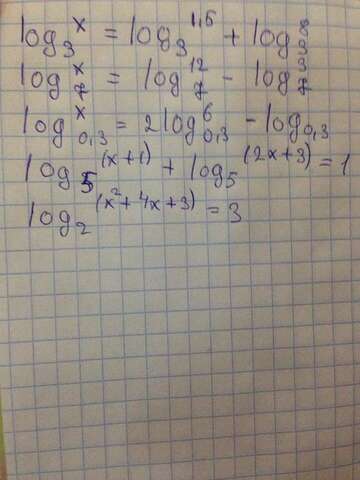 log₃ x = log₃ 1,5 + log₃ 8
log₇ x = log₇ 12 - log₇ 3
log₀,₃ x = 2 log₀,₃ 6 - log₀,₃
log₅ (x+1) + log₅ (2x+3) = 1
log₂ (x² + 4x + 3) = 3